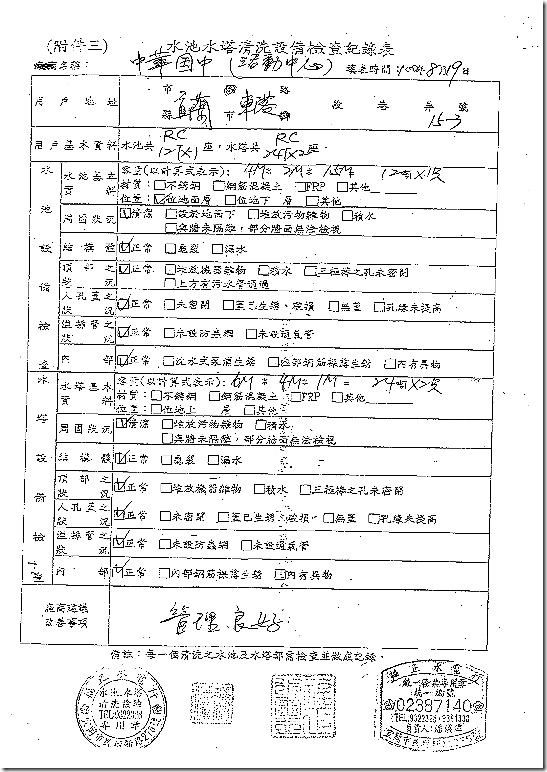 (附件三) 水池水塔清洗設備檢查紀錄表
名稱: 中華国中 (活動中心) 填表時間: 100年8月19日
用戶地址 市 縣 宜蘭 市 東港 路 設卷票號 15-3
用戶基本資料 水池共 RC 12T×1 座,水塔共 RC 24T×2 座。
水池設備檢查
水池基本資料 容量(以計算式表示): 4M × 2M × 1.5M = 12噸×1只
材質:□不銹鋼 □鋼筋混凝土 □FRP □其他
位置:☑位地面層 □位地下 層 □其他
周圍狀況 ☑清潔 □設於地面下 □堆放污物雜物 □積水
□與牆未隔離,部分牆面無法檢視
結構體 ☑正常 □龜裂 □漏水
頂部之狀況 ☑正常 □堆放機器雜物 □積水 □三極棒之孔未密閉
□上方有污水管通過
人孔蓋之狀況 ☑正常 □未密閉 □蓋已生銹、破損 □無蓋 □孔緣未提高
溢排管之狀況 ☑正常 □未設防蟲網 □未設通氣管
內部 ☑正常 □沈水式泵浦生銹 □內部鋼筋裸落生銹 □內有異物
水塔設備檢查
水塔基本資料 容量(以計算式表示): 6M × 4M × 1M = 24噸×2只
材質:□不銹鋼 □鋼筋混凝土 □FRP □其他
位置:□位地上 層 □其他
周圍狀況 ☑清潔 □堆放污物雜物 □積水
□與牆未隔離,部分牆面無法檢視
結構體 ☑正常 □龜裂 □漏水
頂部之狀況 ☑正常 □堆放機器雜物 □積水 □三極棒之孔未密閉
人孔蓋之狀況 ☑正常 □未密閉 □蓋已生銹、破損 □無蓋 □孔緣未提高
溢排管之狀況 ☑正常 □未設防蟲網 □未設通氣管
內部 ☑正常 □內部鋼筋裸落生銹 □內有異物
廠商建議改善事項 管理良好。
備註:每一個清洗之水池及水塔均需檢查並做成記錄。
水池.水塔
清洗檢驗
TEL:9322328
專用章
統一發票專用章
統一編號
02387140
TEL:9322328·9381333